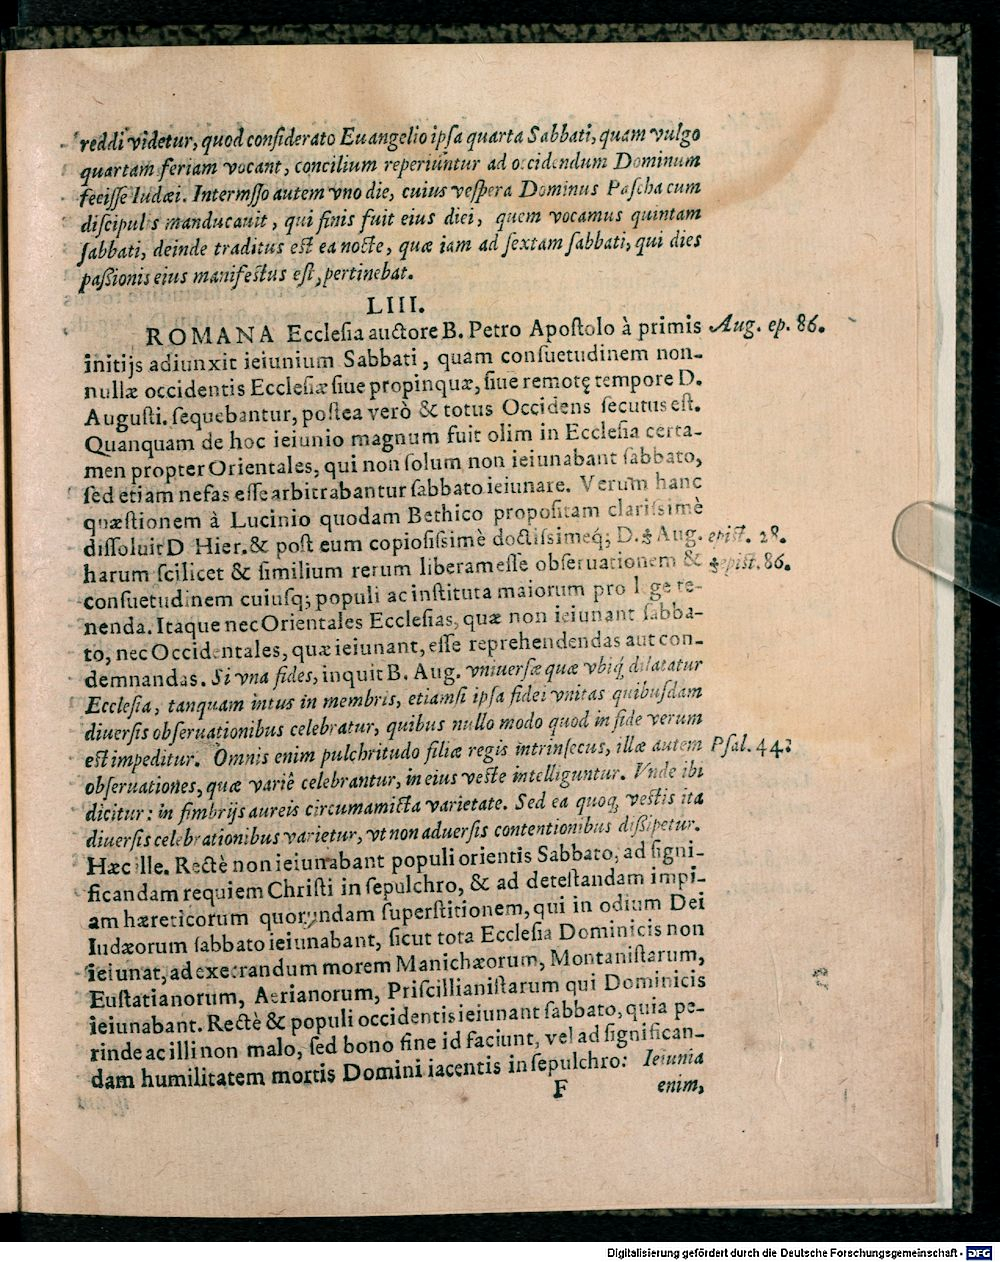 reddi videtur, quod considerato Euangelio ipsa quarta Sabbati, quam vulgo
quartam feriam vocant, concilium reperiuntur ad occidendum Dominum
fecisse Iudæi. Intermsso autem vno die, cuius vespera Dominus Pascha cum
discipulis manducauit, qui finis fuit eius diei, quem vocamus quintam
sabbati, deinde traditus est ea nocte, quæ iam ad sextam sabbati, qui dies
passionis eius manifestus est, pertinebat.
LIII.
ROMANA Ecclesia auctore B. Petro Apostolo à primis Aug. ep. 86.
initijs adiunxit ieiunium Sabbati, quam consuetudinem non-
nullæ occidentis Ecclesiæ siue propinquæ, siue remotę tempore D.
Augusti. sequebantur, postea verò & totus Occidens secutus est.
Quanquam de hoc ieiunio magnum fuit olim in Ecclesia certa-
men propter Orientales, qui non solum non ieiunabant sabbato,
sed etiam nefas esse arbitrabantur sabbato ieiunare. Verum hanc
quæstionem à Lucinio quodam Bethico propositam clarissimè
dissoluit D Hier. & post eum copiosissimè doctissimeq; D. & Aug. epist. 28.
harum scilicet & similium rerum liberam esse obseruationem & & epist. 86.
consuetudinem cuiusq; populi ac instituta maiorum pro lege te-
nenda. Itaque nec Orientales Ecclesias, quæ non ieiunant sabba-
to, nec Occidentales, quæ ieiunant, esse reprehendendas aut con-
demnandas. Si vna fides, inquit B. Aug. vniuersæ quæ vbiq; dilatatur
Ecclesia, tanquam intus in membris, etiamsi ipsa fidei vnitas quibusdam
diuersis obseruationibus celebratur, quibus nullo modo quod in fide verum
est impeditur. Omnis enim pulchritudo filiæ regis intrinsecus, illæ autem Psal. 44.
obseruationes, quæ variè celebrantur, in eius veste intelliguntur. Vnde ibi
dicitur: in fimbrijs aureis circumamicta varietate. Sed ea quoq; vestis ita
diuersis celebrationibus varietur, vt non aduersis contentionibus dissipetur.
Hæc ille. Rectè non ieiunabant populi orientis Sabbato, ad signi-
ficandam requiem Christi in sepulchro, & ad detestandam impi-
am hæreticorum quorundam superstitionem, qui in odium Dei
Iudæorum sabbato ieiunabant, sicut tota Ecclesia Dominicis non
ieiunat, ad execrandum morem Manichæorum, Montanistarum,
Eustatianorum, Aerianorum, Priscillianistarum qui Dominicis
ieiunabant. Rectè & populi occidentis ieiunant sabbato, quia pe-
rinde ac illi non malo, sed bono fine id faciunt, vel ad significan-
dam humilitatem mortis Domini iacentis in sepulchro: Ieiunia
F enim,
Digitalisierung gefördert durch die Deutsche Forschungsgemeinschaft - DFG